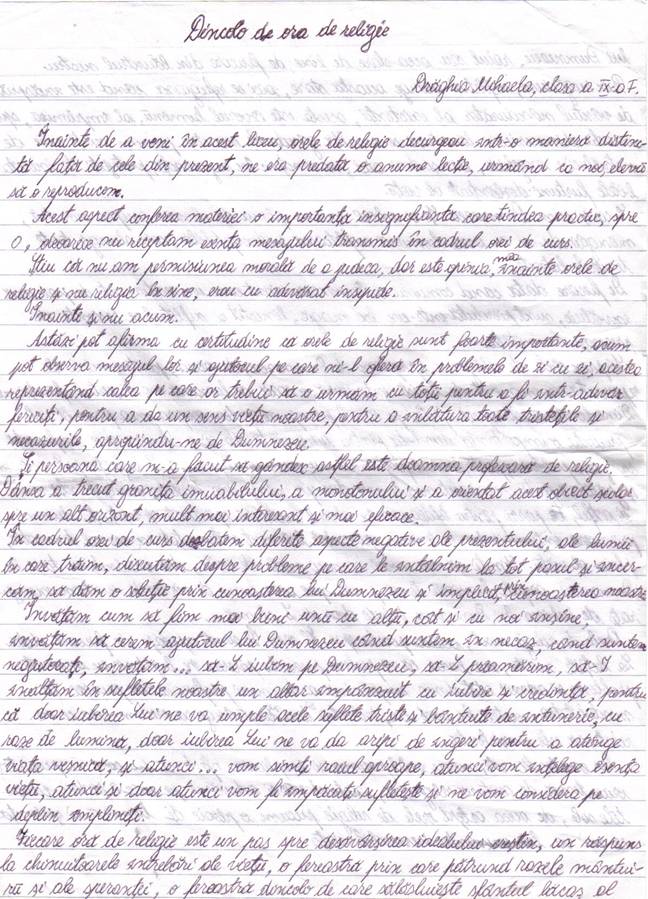 Dincolo de ora de religie
Drăghia Mihaela, clasa a IX-a F.
Înainte de a veni în acest liceu, orele de religie decurgeau într-o manieră distinc-
tă față de cele din prezent, ne era predată o anume lecție, urmând ca noi, elevii
să o reproducem.
Acest aspect conferea materiei o importanță insignefiantă care tindea practic, spre
0, deoarece nu receptam esența mesajului transmis în cadrul orei de curs.
Știu că nu am permisiunea morală de a judeca, dar este opinia mea, înainte orele de
religie și nu religia în sine, erau cu adevărat insipide.
Înainte și nu acum.
Astăzi pot afirma cu certitudine că orele de religie sunt foarte importante, acum
pot observa mesajul lor și ajutorul pe care ni-l oferă în problemele de zi cu zi, acestea
reprezentând calea pe care ar trebui să o urmăm cu toții pentru a fi într-adevăr
fericiți, pentru a da un sens vieții noastre, pentru a înlătura toate tristețile și
necazurile, apropiindu-ne de Dumnezeu.
Și persoana care m-a făcut să gândesc astfel este doamna profesoară de religie.
Dânsa a trecut granița imuabilului, a monotonului și a orientat acest obiect școlar
spre un alt orizont, mult mai interesant și mai eficace.
În cadrul orei de curs dezbatem diferite aspecte negative ale prezentului, ale lumii
în care trăim, discutăm despre probleme pe care le întâlnim la tot pasul și încer-
căm să dăm o soluție prin cunoașterea lui Dumnezeu și implicit, prin cunoașterea noastră.
Învățăm cum să fim mai buni unii cu alții, cât și cu noi înșine,
învățăm să cerem ajutorul lui Dumnezeu când suntem în necaz, când suntem
neajutorați, învățăm... să-L iubim pe Dumnezeu, să-L preamărim, să-I
înălțăm în sufletele noastre un altar împânzit cu iubire și credință, pentru
că doar iubirea Lui ne va umple acele suflete triste și bântuite de întuneric, cu
raze de lumină, doar iubirea Lui ne va da aripi de îngeri pentru a atinge
viața veșnică, și atunci... vom simți raiul aproape, atunci vom înțelege esența
vieții, atunci și doar atunci vom fi împăcați sufletește și ne vom considera pe
deplin împliniți.
Fiecare oră de religie este un pas spre desăvârșirea idealului creștin, un răspuns
la chinuitoarele întrebări ale vieții, o fereastră prin care pătrund razele mântui-
rii și ale speranței, o fereastră dincolo de care sălășluiește sfântul lăcaș al